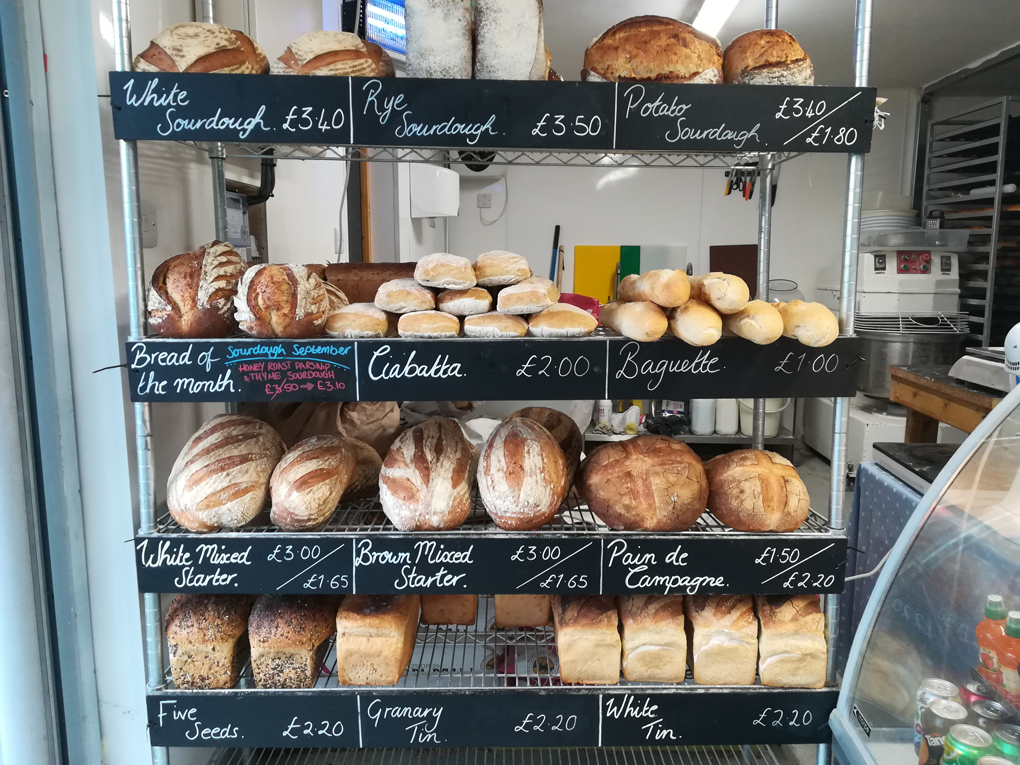 White
Sourdough. £3.40
Rye
Sourdough. £3.50
Potato
Sourdough. £3.40/£1.80
Bread of
the month.
Sourdough September
HONEY ROAST PARSNIP
& THYME SOURDOUGH
£3.50 → £3.10
Ciabatta. £2.00
Baguette. £1.00
White Mixed
Starter. £3.00/£1.65
Brown Mixed
Starter. £3.00/£1.65
Pain de
Campagne. £1.50/£2.20
Five
Seeds. £2.20
Granary
Tin. £2.20
White
Tin. £2.20